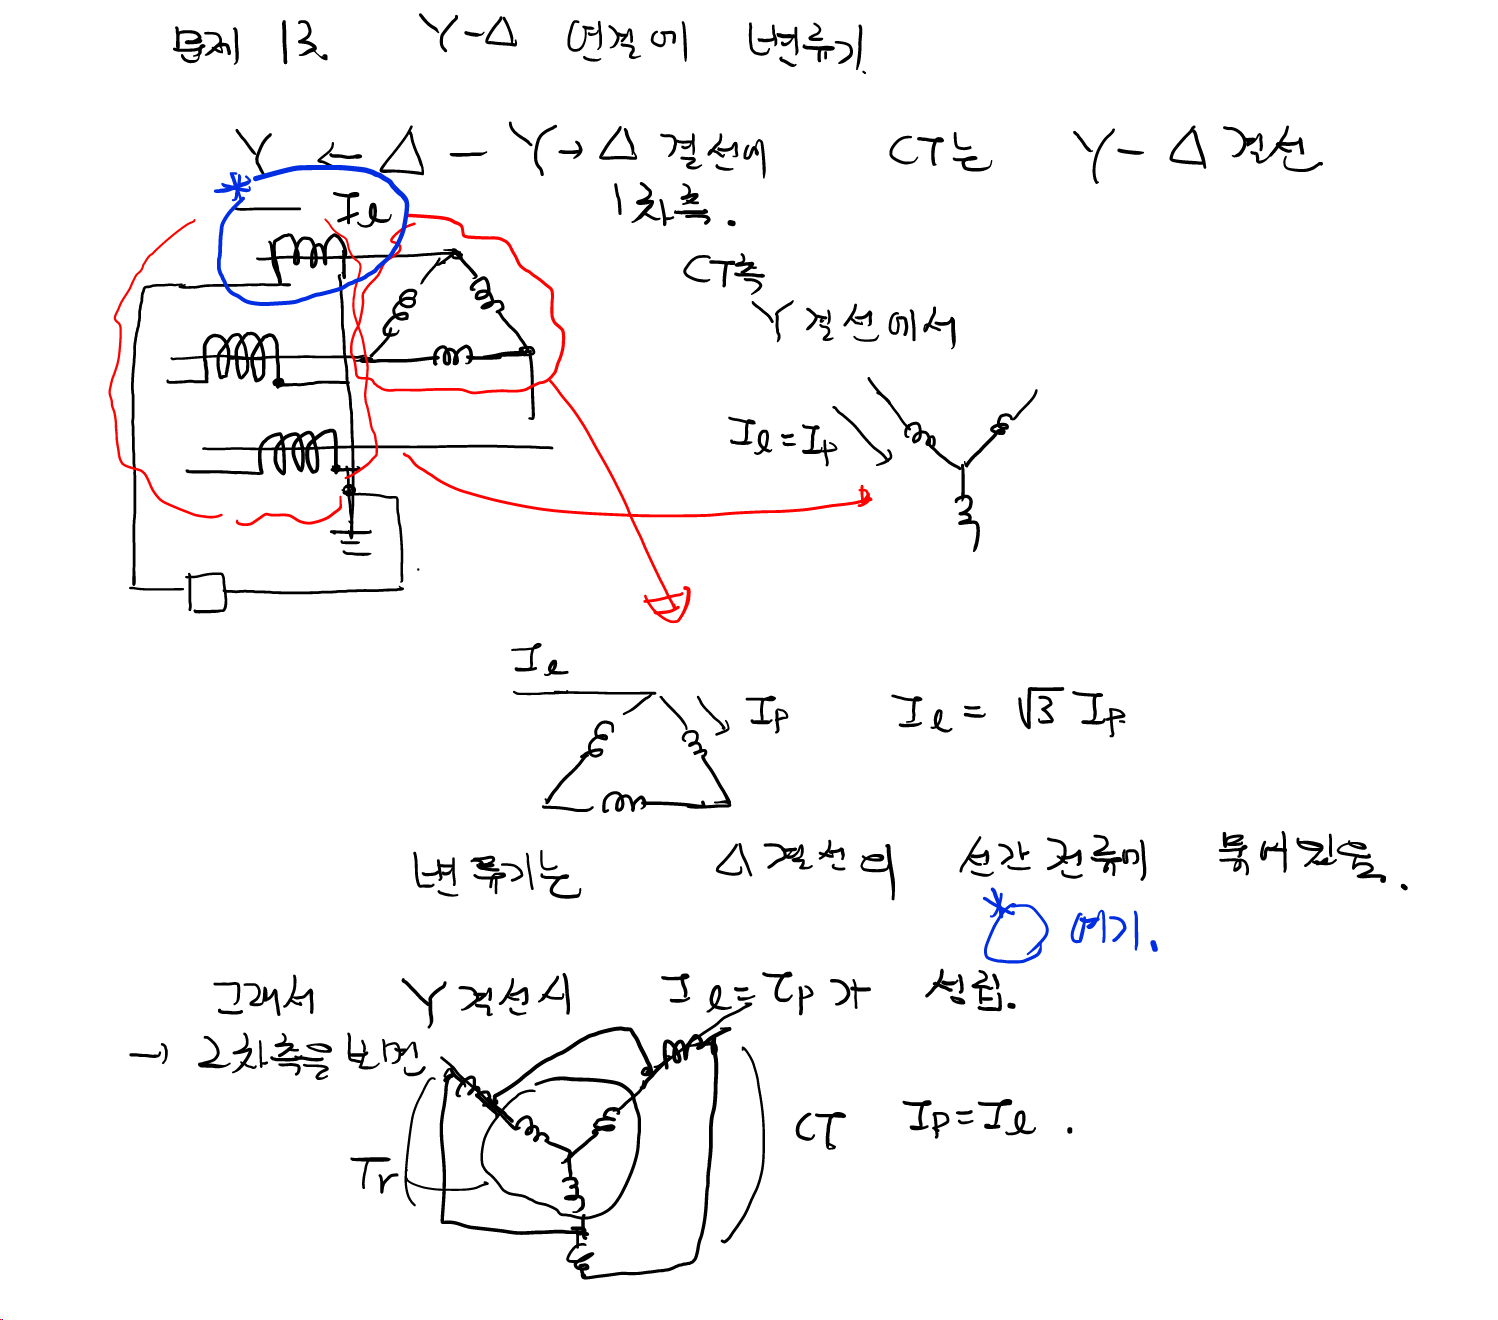 문제 13. Y-Δ 연결에 변류기.
Y ← Δ - Y → Δ 결선에 CT는 Y - Δ 결선
1차측.
* Iℓ
CT측
Y 결선에서
Iℓ = Ip
Iℓ
Ip Iℓ = √3 Ip
변류기는 Δ결선의 선간전류에 묶어있음.
* 여기.
그래서 Y결선시 Iℓ = Ip가 성립.
→ 2차측을 보면
Tr CT Ip = Iℓ.